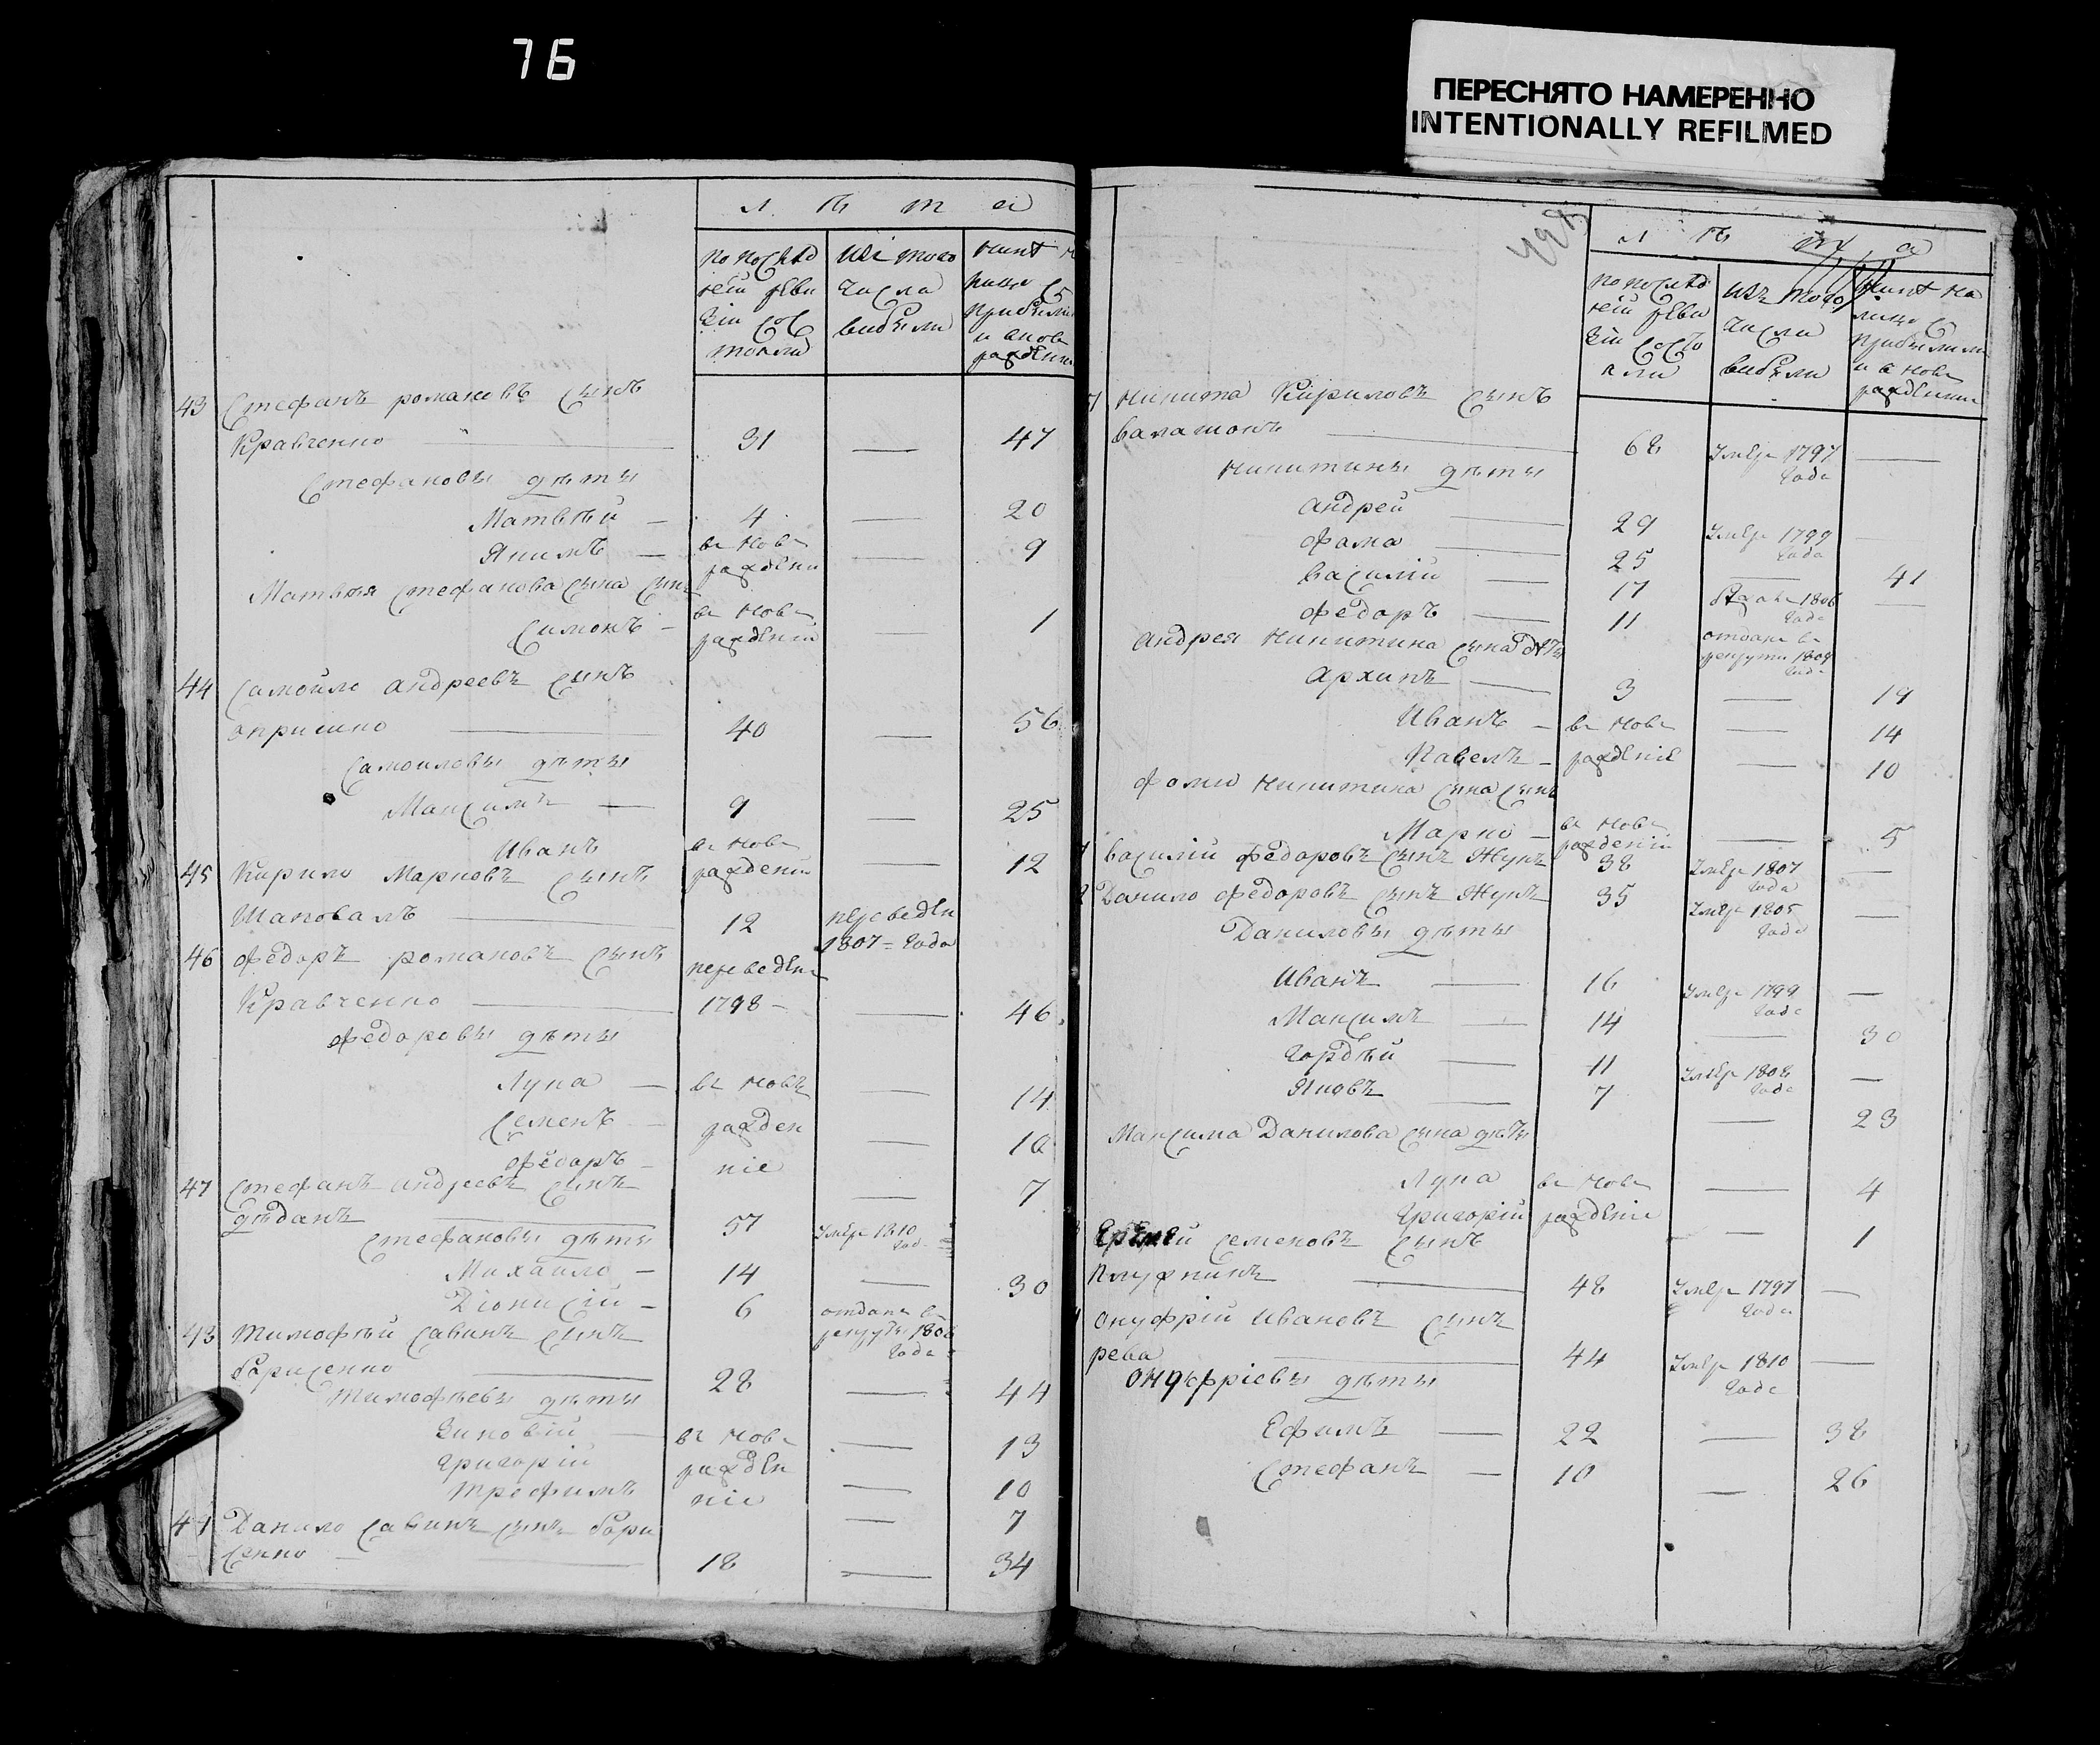 76
ПЕРЕСНЯТО НАМЕРЕННО
INTENTIONALLY REFILMED
лѣта
по послѣд
ней реви
зіи сос
тояли
изъ того
числа
выбыли
нынѣ на
лицо съ
прибылыми
и вновь
рожденными
43 Стефанъ романовъ сынъ
Кравченко — 31 — 47
Стефановы дѣты
Матвѣй — 4 — 20
Якимъ — въ новѣ рожденій — 9
Матвѣя Стефанова сына сынъ
Симонъ — въ новѣ рожденій — 1
44 Самойло андреевъ сынъ
40 — 56
Самоиловы дѣты
Максимъ — 9 — 25
Иванъ въ новѣ рожденій — 12
45 Кирило Марковъ сынъ
Шаповалъ — 12 переведен 1807 = года
46 Федоръ романовъ сынъ переведен
Кравченко — 1798 — 46
Федоровы дѣты
Лука — въ новъ — 14
Семенъ — рожден — 10
Федоръ — ніе — 7
47 Стефанъ андреевъ сынъ
дѣданъ — 57 Умер 1810 год
Стефановы дѣты
Михайло — 14 — 30
Діонисій — 6 отданъ въ рекруты 1808 года
48 Тимофѣй Савинъ сынъ
Борисенко — 28 — 44
Тимофѣевы дѣты
Зиновій — въ новѣ — 13
Григорій рожден — 10
Трофимъ ніе — 7
49 Данило Савинъ сынъ Бори
сенко — 18 — 34
лѣта
по послѣд
ней реви
зіи состо
яли
изъ того
числа
выбыли
нынѣ на
лицо съ
прибылыми
и в новѣ
рожденными
Никита Кириловъ сынъ
Балашонъ — 68 Умер 1797 года —
Никитины дѣты
андрей — 29 Умер 1799 года —
Фама — 25 — 41
Василій — 17 1806 года —
Федоръ — 11 отданъ въ рекруты 1809 года
андрея Никитина сына дѣты
Архипъ — 3 — 19
Иванъ — въ новѣ — 14
Павелъ — рожденіе — 10
Фомы Никитина сына сынъ
Марко — въ новѣ рожденіи — 5
Василій Федоровъ сынъ Жукъ 38 Умер 1807 года —
Данило Федоровъ сынъ Жукъ 35 Умер 1805 года —
Даниловы дѣты
Иванъ — 16 Умер 1799 года —
Максимъ — 14 — 30
Гордѣй — 11 Умер 1808 года —
Яковъ — 7 — 23
Максима Данилова сына дѣты
Лука въ новѣ — 4
Григорій рожденіи — 1
Еремей Семеновъ сынъ
48 Умер 1797 года —
Онуфрій Ивановъ сынъ
рева — 44 Умер 1810 года —
Онуфріевы дѣты
Ефимъ — 22 — 38
Стефанъ — 10 — 26